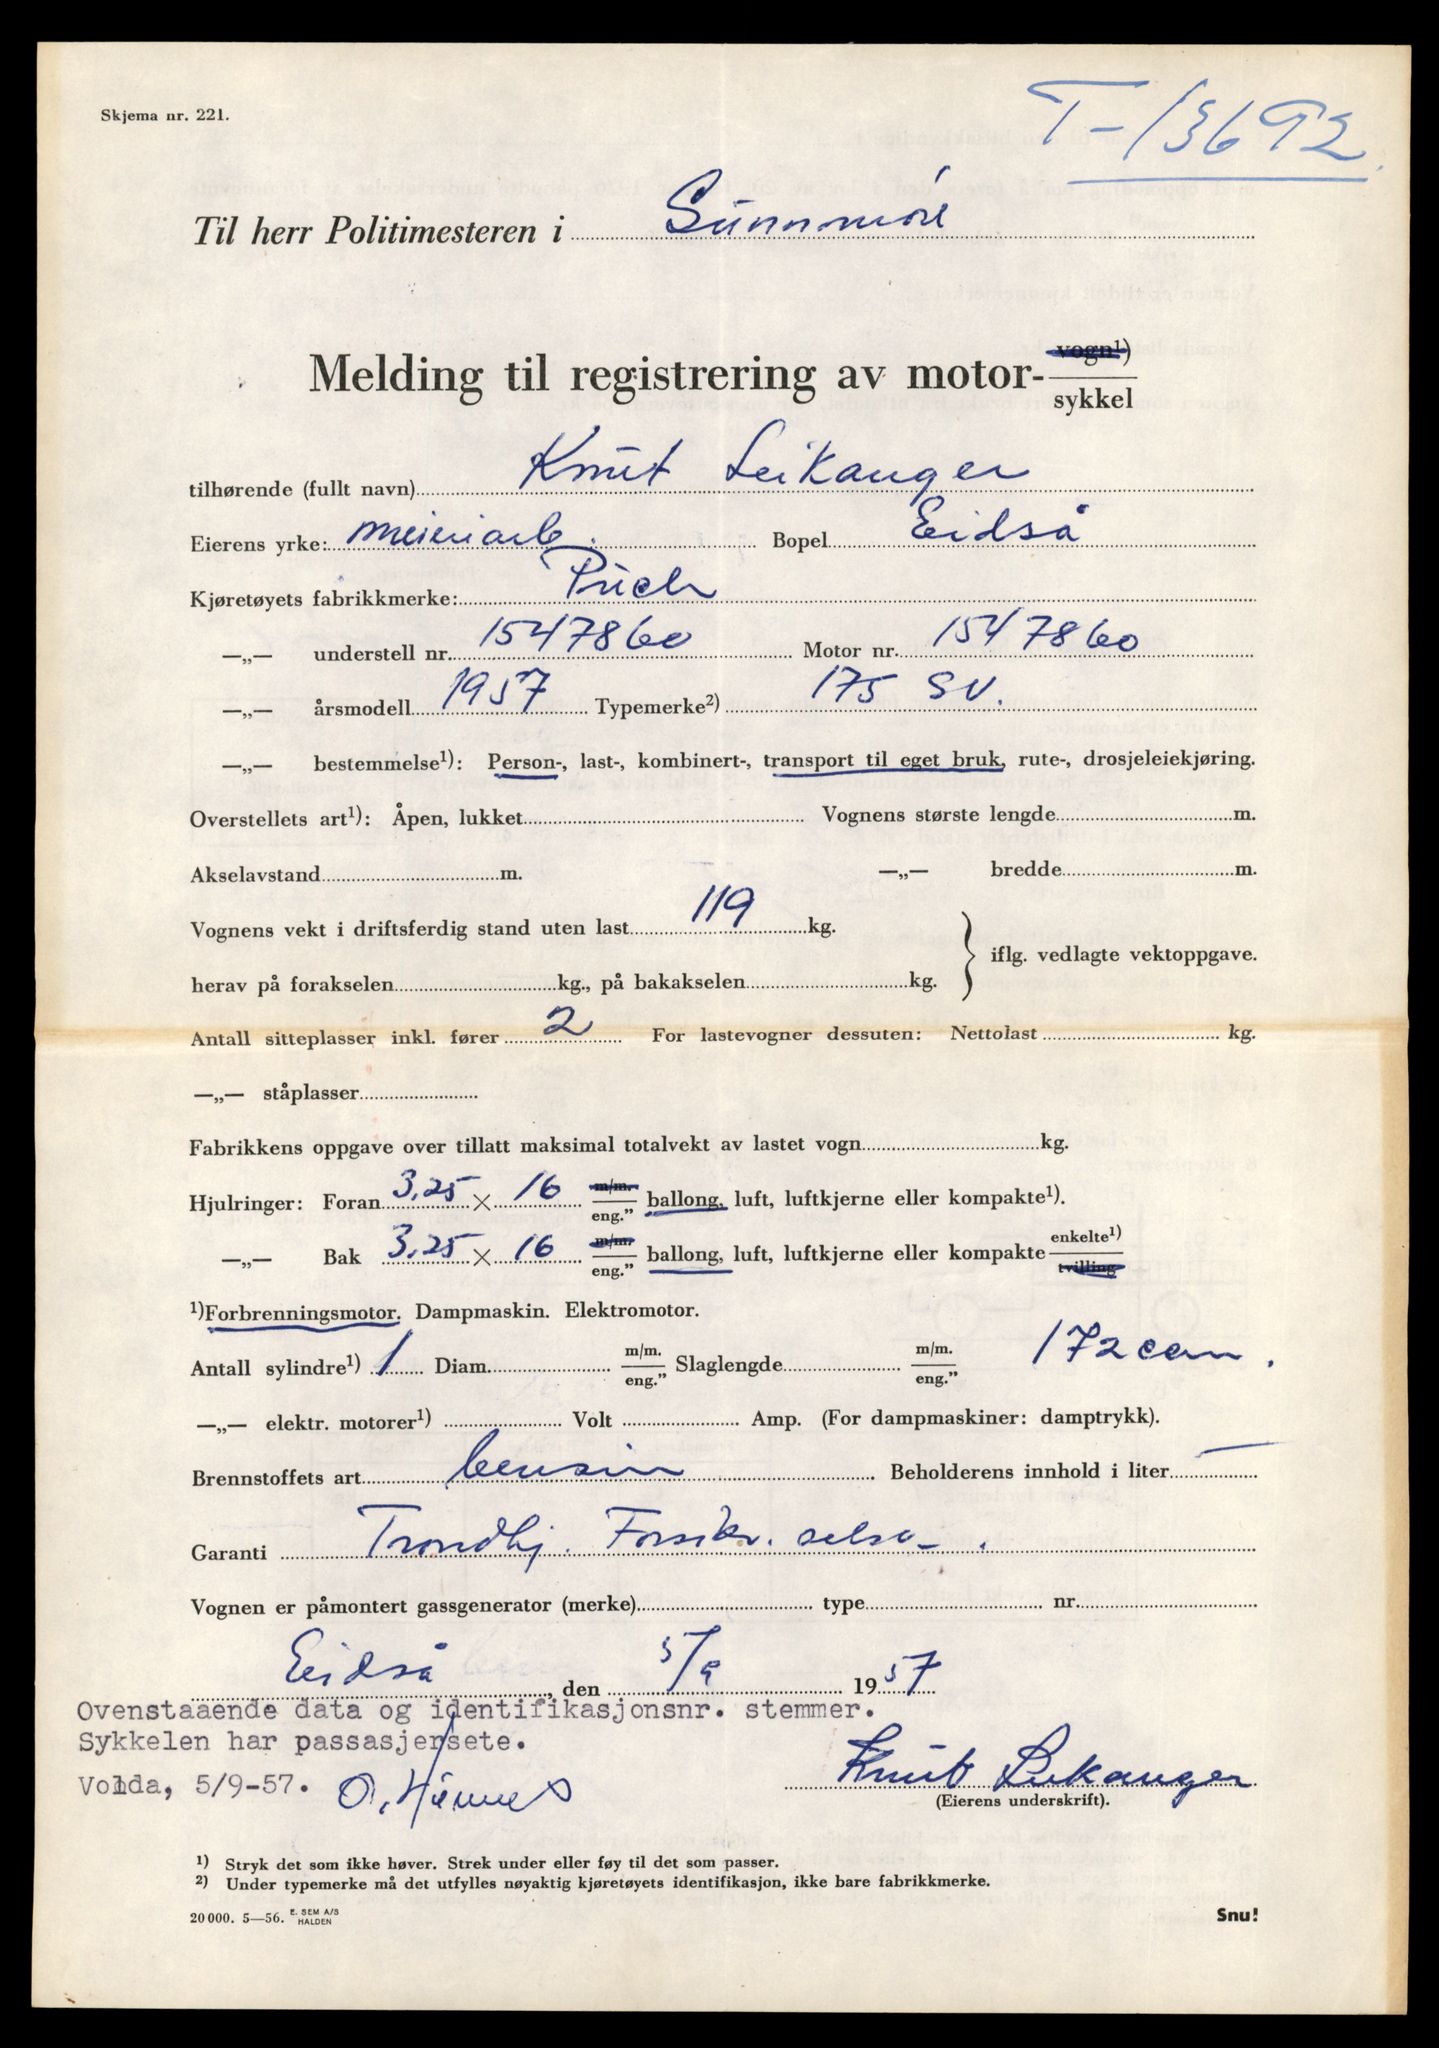 Skjema nr. 221.
T-13692
Til herr Politimesteren i Sunnmöre
Melding til registrering av motor- vogn¹) sykkel
tilhørende (fullt navn) Knut Leikanger
Eierens yrke: meieriarb. Bopel Eidså
Kjøretøyets fabrikkmerke: Puch
—„— understell nr. 1547860 Motor nr. 1547860
—„— årsmodell 1957 Typemerke²) 175 SV.
—„— bestemmelse¹): Person-, last-, kombinert-, transport til eget bruk, rute-, drosjeleiekjøring.
Overstellets art¹): Åpen, lukket Vognens største lengde m.
Akselavstand m. —„— bredde m.
Vognens vekt i driftsferdig stand uten last 119 kg.
iflg. vedlagte vektoppgave.
herav på forakselen kg., på bakakselen kg.
Antall sitteplasser inkl. fører 2 For lastevogner dessuten: Nettolast kg.
—„— ståplasser
Fabrikkens oppgave over tillatt maksimal totalvekt av lastet vogn kg.
Hjulringer: Foran 3,25 × 16 m/m. eng.” ballong, luft, luftkjerne eller kompakte¹).
—„— Bak 3,25 × 16 m/m. eng.” ballong, luft, luftkjerne eller kompakte enkelte¹) tvilling
¹)Forbrenningsmotor. Dampmaskin. Elektromotor.
Antall sylindre¹) 1 Diam. m/m. eng.” Slaglengde m/m. eng.” 172 ccm.
—„— elektr. motorer¹) Volt Amp. (For dampmaskiner: damptrykk).
Brennstoffets art bensin Beholderens innhold i liter —
Garanti Trondhj. Forsikr. selsk.
Vognen er påmontert gassgenerator (merke) type nr.
Eidså, den 5/9 1957
Ovenstaaende data og identifikasjonsnr. stemmer.
Sykkelen har passasjersete.
Volda, 5/9-57. O.
Knut Leikanger
(Eierens underskrift).
¹) Stryk det som ikke høver. Strek under eller føy til det som passer.
²) Under typemerke må det utfylles nøyaktig kjøretøyets identifikasjon, ikke bare fabrikkmerke.
20 000. 5—56. E. SEM A/S HALDEN
Snu!